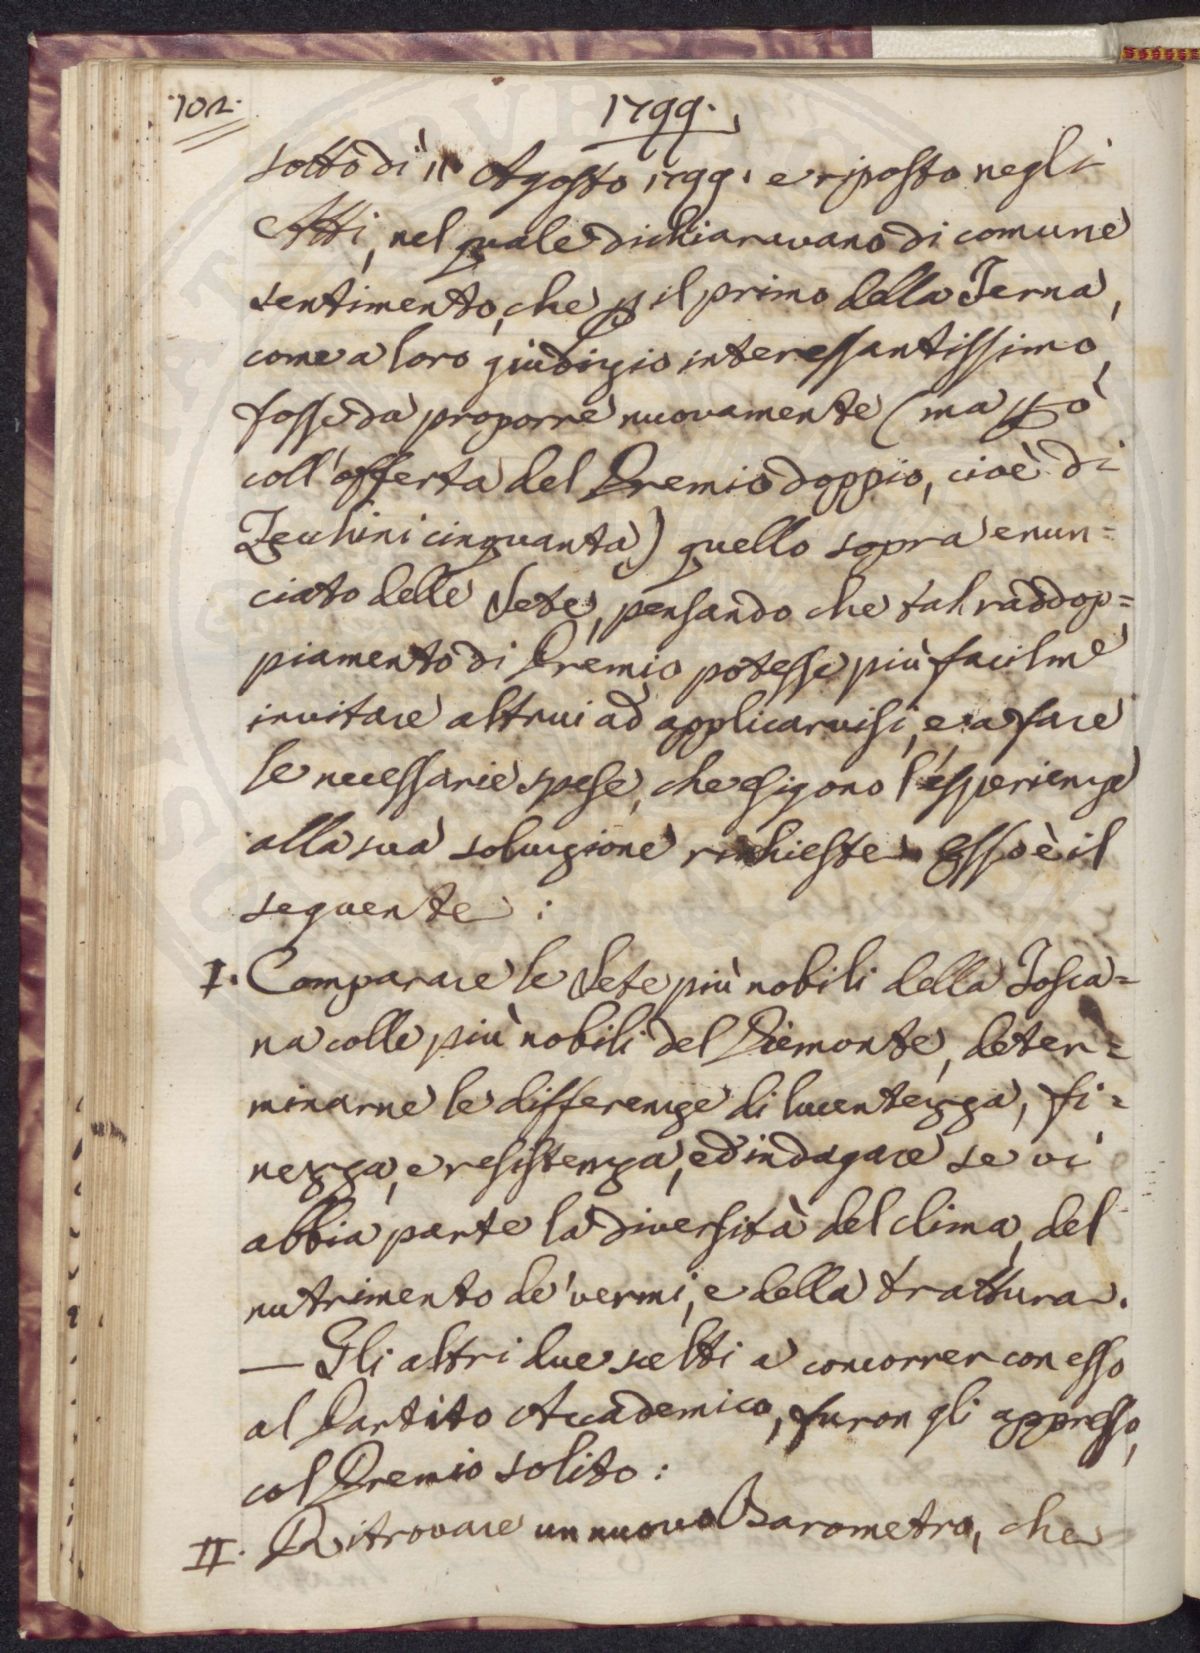 102.
1799.
sotto dì 11 Agosto 1799. e riposto negli
Atti, nel quale dichiaravano di comune
sentimento, che ꝑ il primo della Terna,
come a loro giudizio interessantissimo,
fosse da proporre nuovamente (ma ꝑò
coll'offerta del Premio doppio, cioè di
Zecchini cinquanta) quello sopra enun=
ciato delle Sete, pensando che tal raddop=
piamento di Premio potesse più facilm.e
invitare altrui ad applicarvisi, e a fare
le necessarie spese, che esigono l'esperienze
alla sua soluzione richieste. Esso è il
seguente :
I. Comparare le Sete più nobili della Tosca=
na colle più nobili del Piemonte, deter=
minarne le differenze di lucentezza, fi=
nezza, e resistenza, ed indagare se vi
abbia parte la diversità del clima, del
nutrimento de' vermi, e della trattura.
— Gli altri due scelti a concorrer con esso
al Partito Accademico, furon gli appresso,
col Premio solito :
II. Ritrovare un nuovo Barometro, che